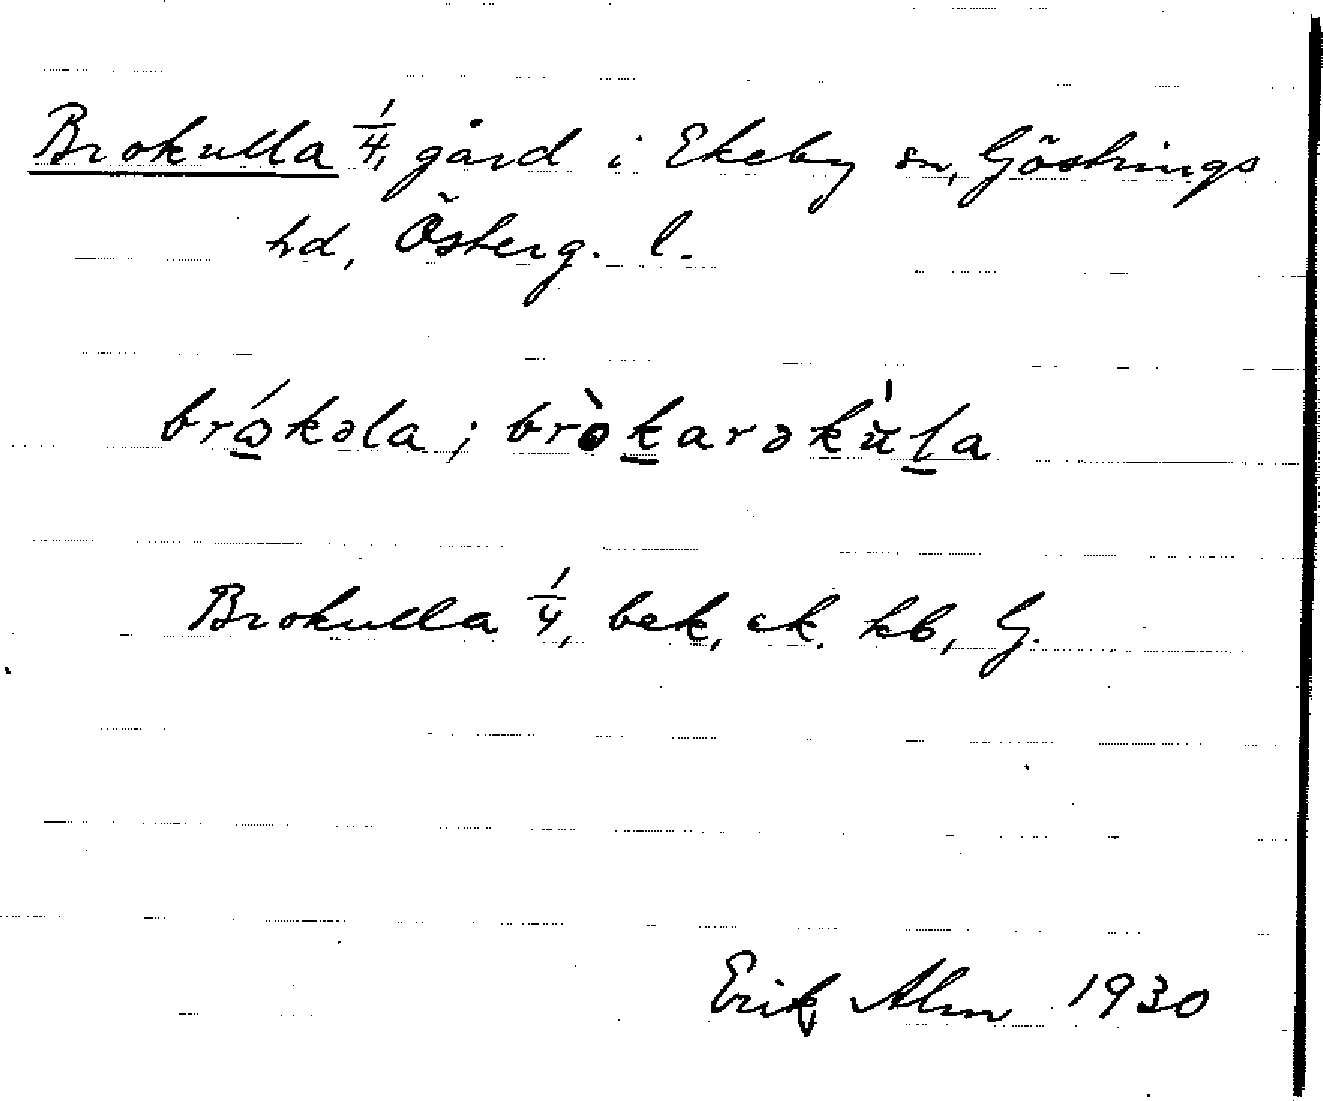 Brokulla 1/4, gård i Ekeby sn, Göstrings
hd, Österg. l.
brώ̱kəla; bròḵarəkùḻa
Brokulla 1/4, bek, ek. kb, G.
Erik Alm 1930